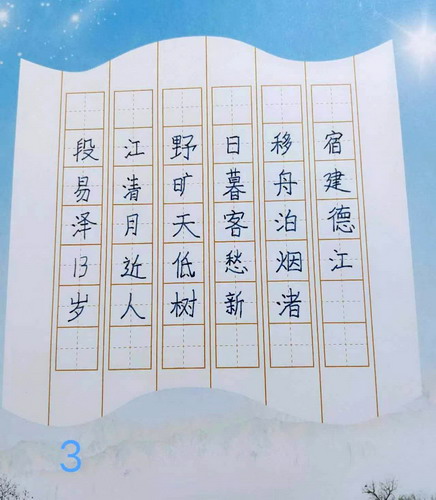 宿建德江
移舟泊烟渚
日暮客愁新
野旷天低树
江清月近人
段易泽13岁
3